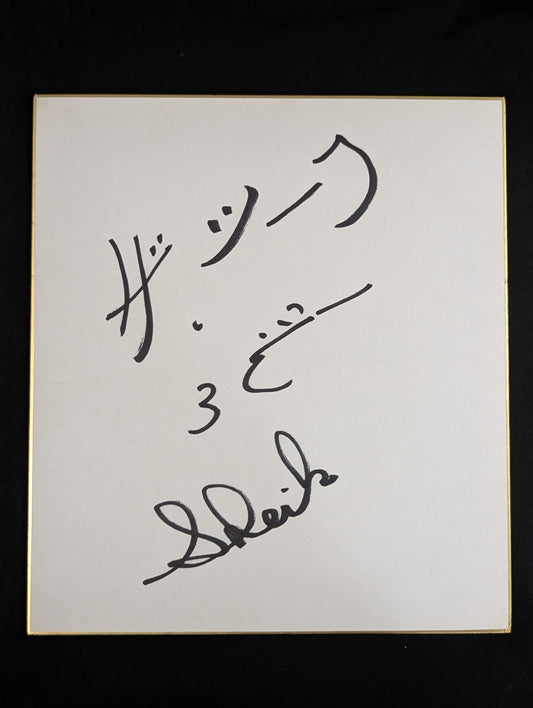 ザ・シーク
3ビー
Sheik